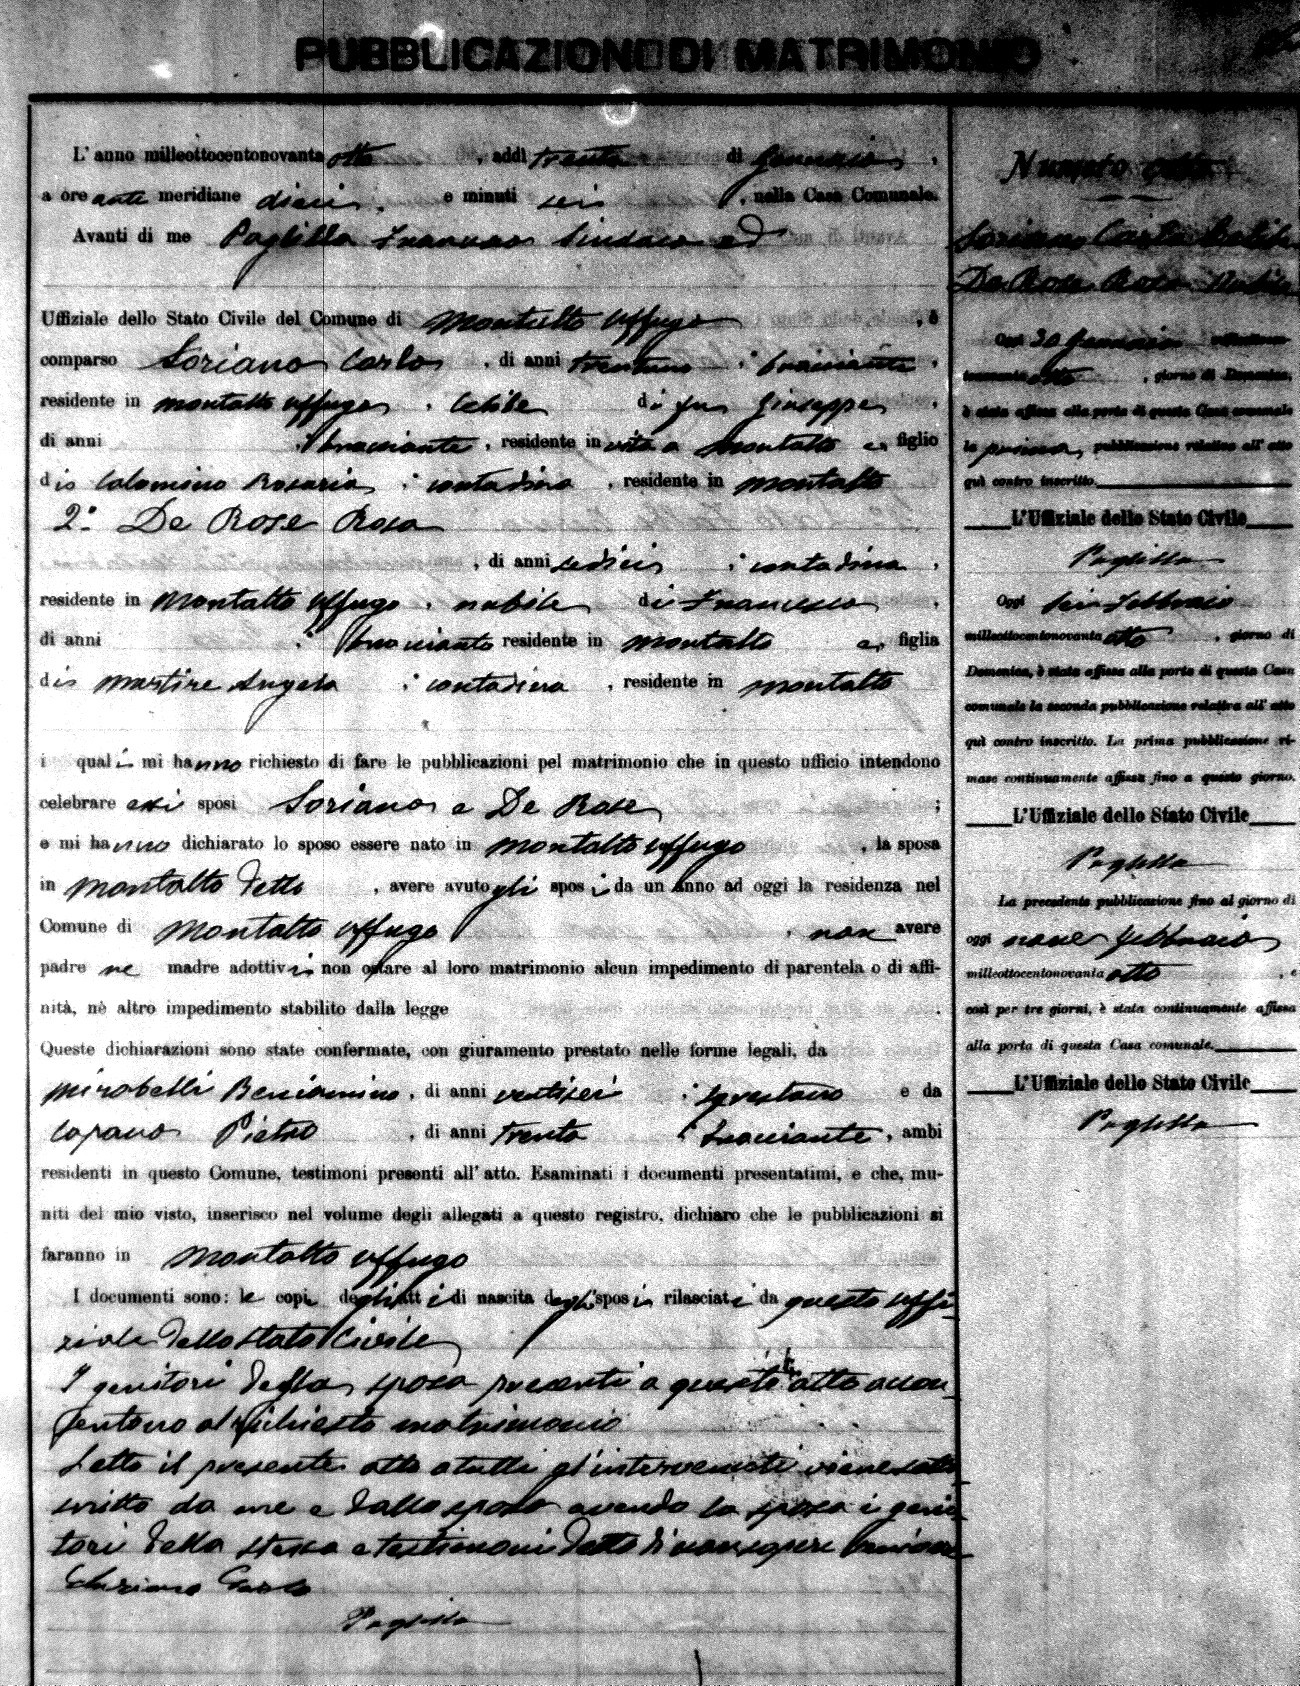 PUBBLICAZIONE DI MATRIMONIO
L'anno milleottocentonovanta otto, addì trenta di Gennaio,
a ore ante meridiane dieci, e minuti sei, nella Casa Comunale.
Avanti di me Paglilla Francesco Sindaco ed
Uffiziale dello Stato Civile del Comune di Montalto Uffugo, è
comparso Soriano Carlo, di anni trentuno, bracciante,
residente in Montalto Uffugo, Celibe di fu Giuseppe,
di anni bracciante, residente in vita a Montalto e figlio
di Colomino Rosaria, contadina, residente in Montalto
2° De Rose Rosa
, di anni sedici, contadina,
residente in Montalto Uffugo, nubile di Francesco,
di anni, bracciante residente in Montalto e, figlia
di Martire Angela, contadina, residente in Montalto
i quali mi hanno richiesto di fare le pubblicazioni pel matrimonio che in questo ufficio intendono
celebrare essi sposi Soriano e De Rose;
e mi hanno dichiarato lo sposo essere nato in Montalto Uffugo, la sposa
in Montalto detto, avere avuto gli sposi da un anno ad oggi la residenza nel
Comune di Montalto Uffugo, non avere
padre ne madre adottivi non ostare al loro matrimonio alcun impedimento di parentela o di affi-
nità, nè altro impedimento stabilito dalla legge.
Queste dichiarazioni sono state confermate, con giuramento prestato nelle forme legali, da
Mirabelli Beniamino, di anni ventisei, e da
Capano Pietro, di anni trenta, bracciante, ambi
residenti in questo Comune, testimoni presenti all'atto. Esaminati i documenti presentatimi, e che, mu-
niti del mio visto, inserisco nel volume degli allegati a questo registro, dichiaro che le pubblicazioni si
faranno in Montalto Uffugo
I documenti sono: le copie degli atti di nascita degli sposi rilasciate da questo uffi
ziale dello stato Civile
I genitori della sposa presenti a questo atto accon
sentono al richiesto matrimonio
Letto il presente atto a tutti gl'intervenuti viene sotto
scritto da me e dallo sposo avendo la sposa i geni
tori della stessa e testimoni detto di non sapere
Soriano Carlo
Paglilla
Numero otto
Soriano Carlo Celibe
De Rose Rosa Nubile
Oggi 30 Gennaio milleottocen-
tonovanta otto, giorno di Domenica,
è stata affissa alla porta di questa Casa comunale
la prima pubblicazione relativa all'atto
quì contro inscritto.
L'Uffiziale dello Stato Civile
Paglilla
Oggi sei Febbraio
milleottocentonovanta otto, giorno di
Domenica, è stata affissa alla porta di questa Casa
comunale la seconda pubblicazione relativa all'atto
quì contro inscritto. La prima pubblicazione ri-
mase continuamente affissa fino a questo giorno.
L'Uffiziale dello Stato Civile
Paglilla
La precedente pubblicazione fino al giorno di
oggi nove Febbraio
milleottocentonovanta otto, e
così per tre giorni, è stata continuamente affissa
alla porta di questa Casa comunale.
L'Uffiziale dello Stato Civile
Paglilla